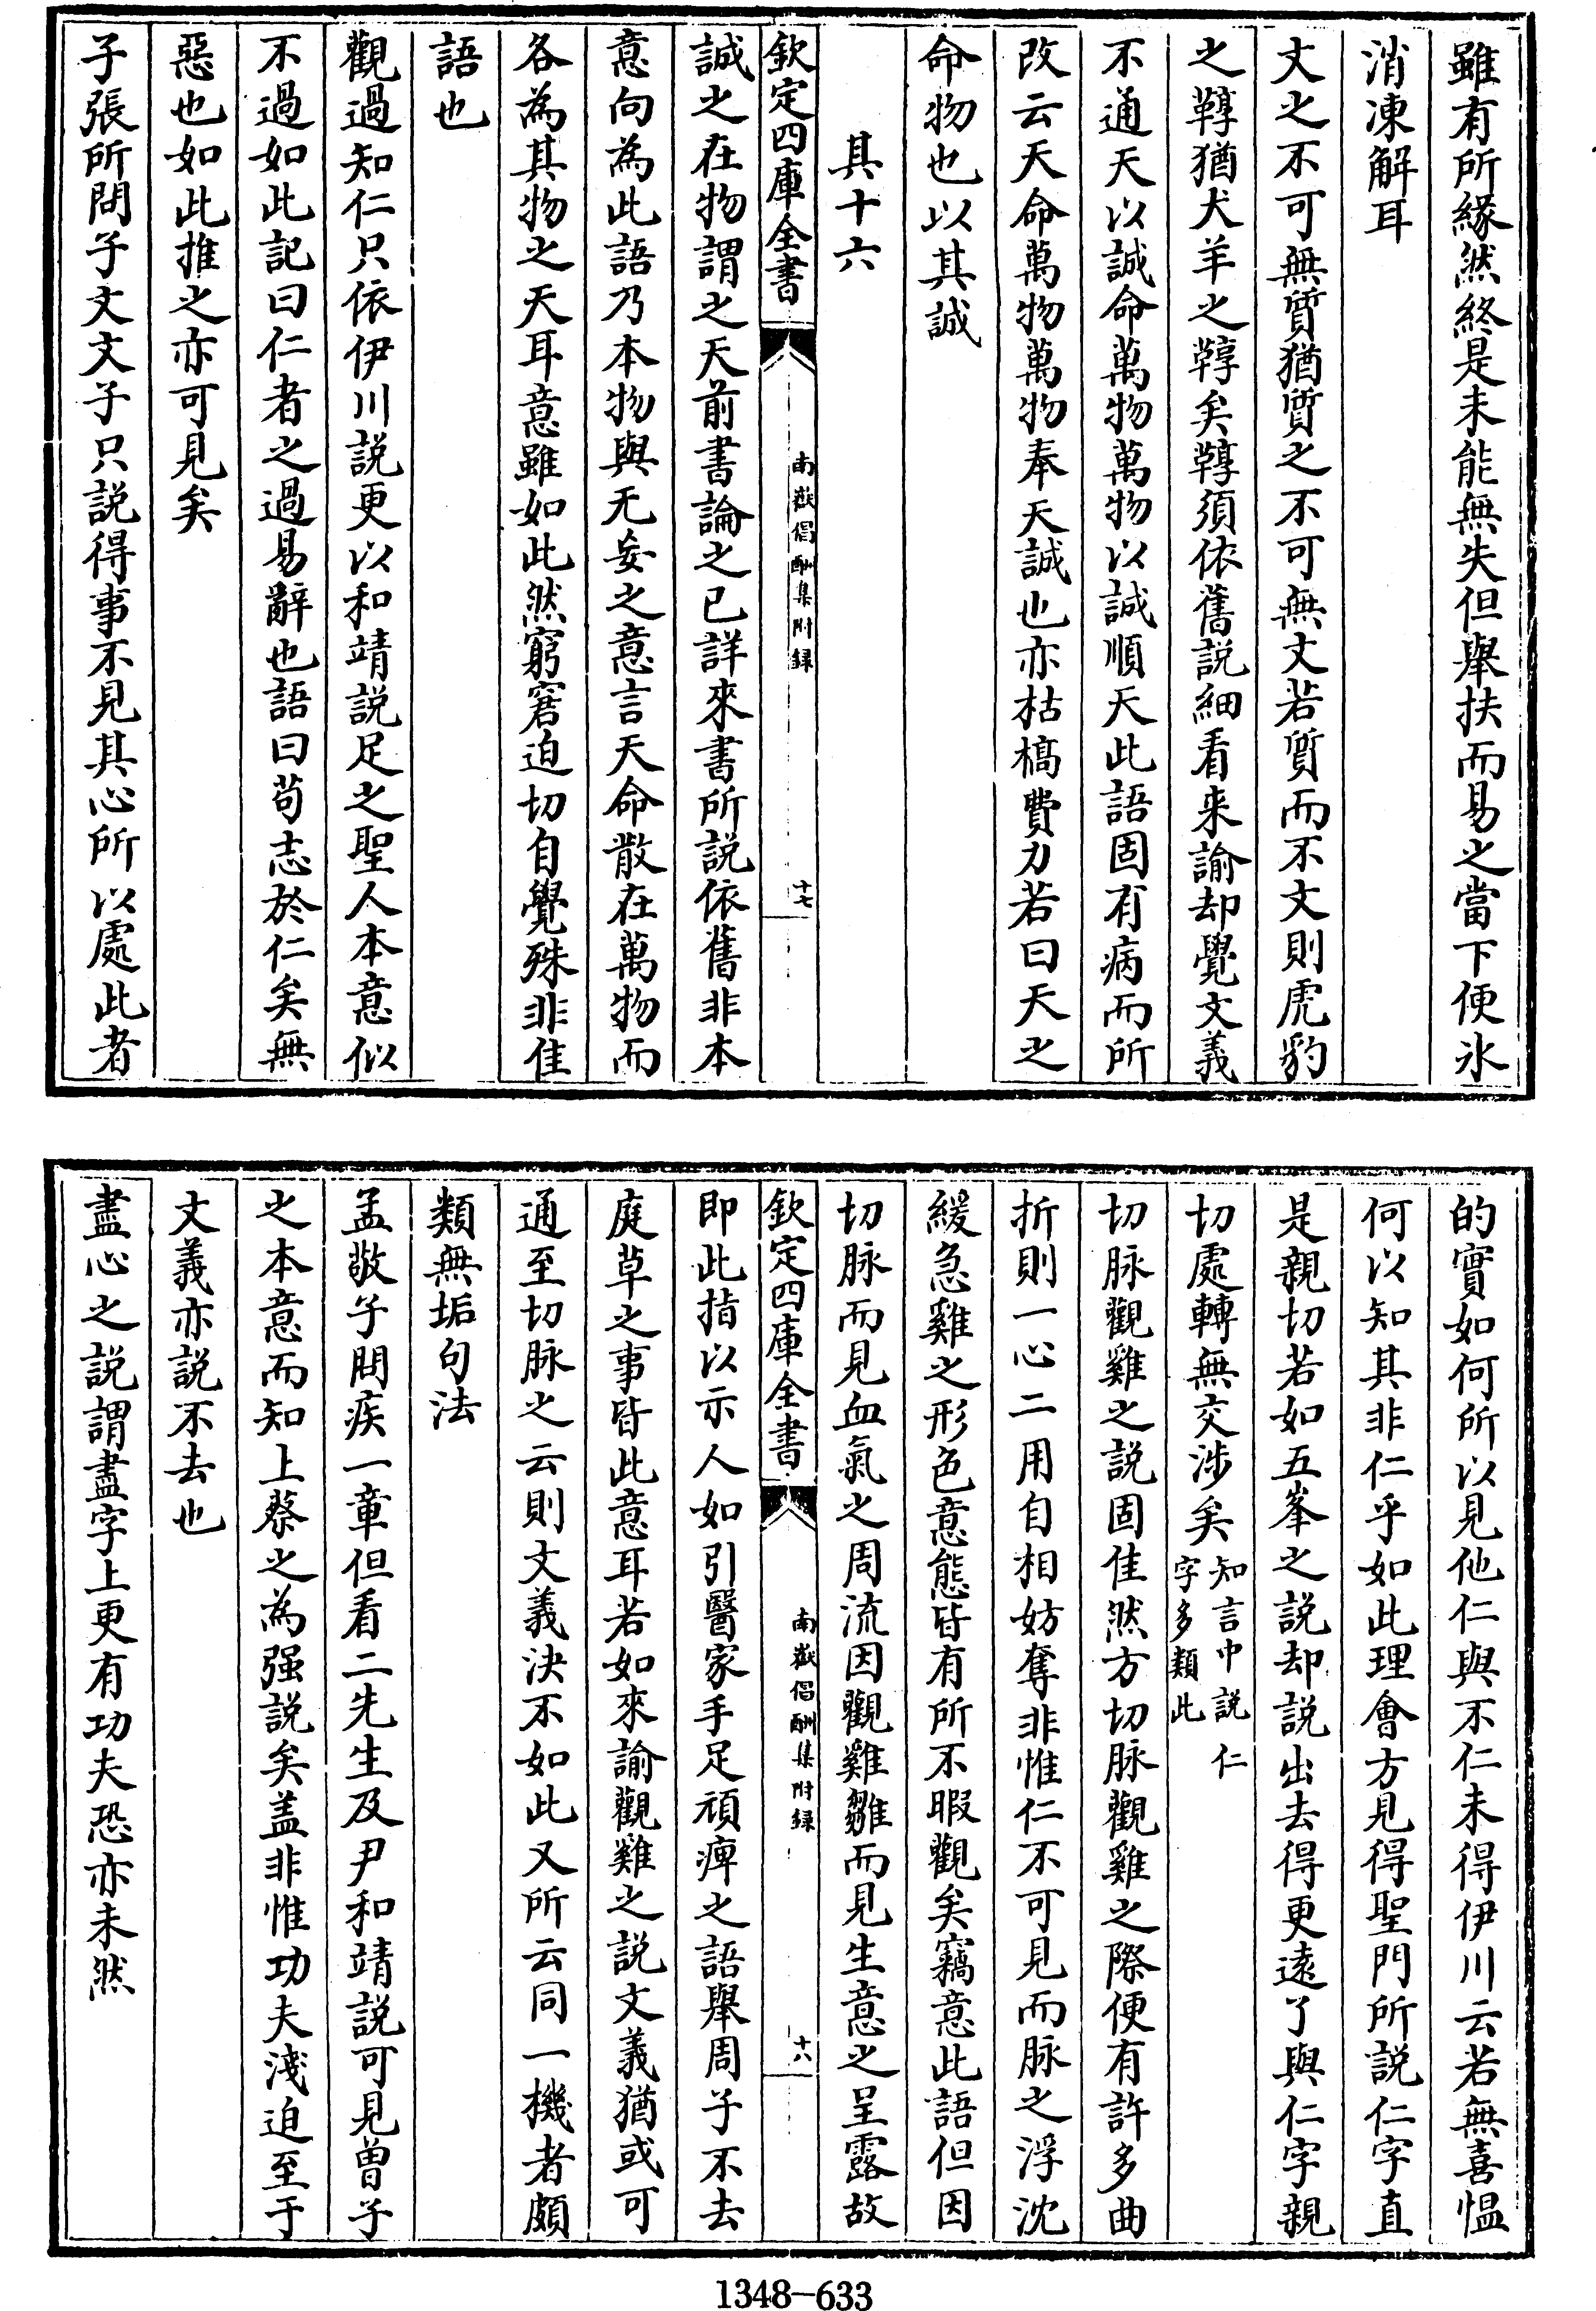 雖有所緣然終是未能無失但舉扶而易之當下便氷
消凍解耳
文之不可無質猶質之不可無文若質而不文則虎豹
之鞟猶犬羊之鞟矣鞟須依舊説細看来諭却覺文義
不通天以誠命萬物萬物以誠順天此語固有病而所
改云天命萬物萬物奉天誠也亦枯槁費力若曰天之
命物也以其誠
其十六
欽定四庫全書
南嶽倡酬集附録
十七
誠之在物謂之天前書論之已詳來書所説依舊非本
意向為此語乃本物與无妄之意言天命散在萬物而
各為其物之天耳意雖如此然窮窘迫切自覺殊非佳
語也
觀過知仁只依伊川説更以和靖説足之聖人本意似
不過如此記曰仁者之過易辭也語曰苟志於仁矣無
惡也如此推之亦可見矣
子張所問子文文子只説得事不見其心所以處此者
的實如何所以見他仁與不仁未得伊川云若無喜愠
何以知其非仁乎如此理會方見得聖門所説仁字直
是親切若如五峯之説却説出去得更遠了與仁字親
切處轉無交涉矣知言中説仁
字多類此
切脉觀雞之説固佳然方切脉觀雞之際便有許多曲
折則一心二用自相妨奪非惟仁不可見而脉之浮沈
緩急雞之形色意態皆有所不暇觀矣竊意此語但因
切脉而見血氣之周流因觀雞雛而見生意之呈露故
欽定四庫全書
南嶽倡酬集附録
十八
即此指以示人如引醫家手足頑痺之語舉周子不去
庭草之事皆此意耳若如來諭觀雞之説文義猶或可
通至切脉之云則文義決不如此又所云同一機者頗
類無垢句法
孟敬子問疾一章但看二先生及尹和靖説可見曽子
之本意而知上蔡之為强説矣盖非惟功夫淺迫至于
文義亦説不去也
盡心之説謂盡字上更有功夫恐亦未然
1348-633